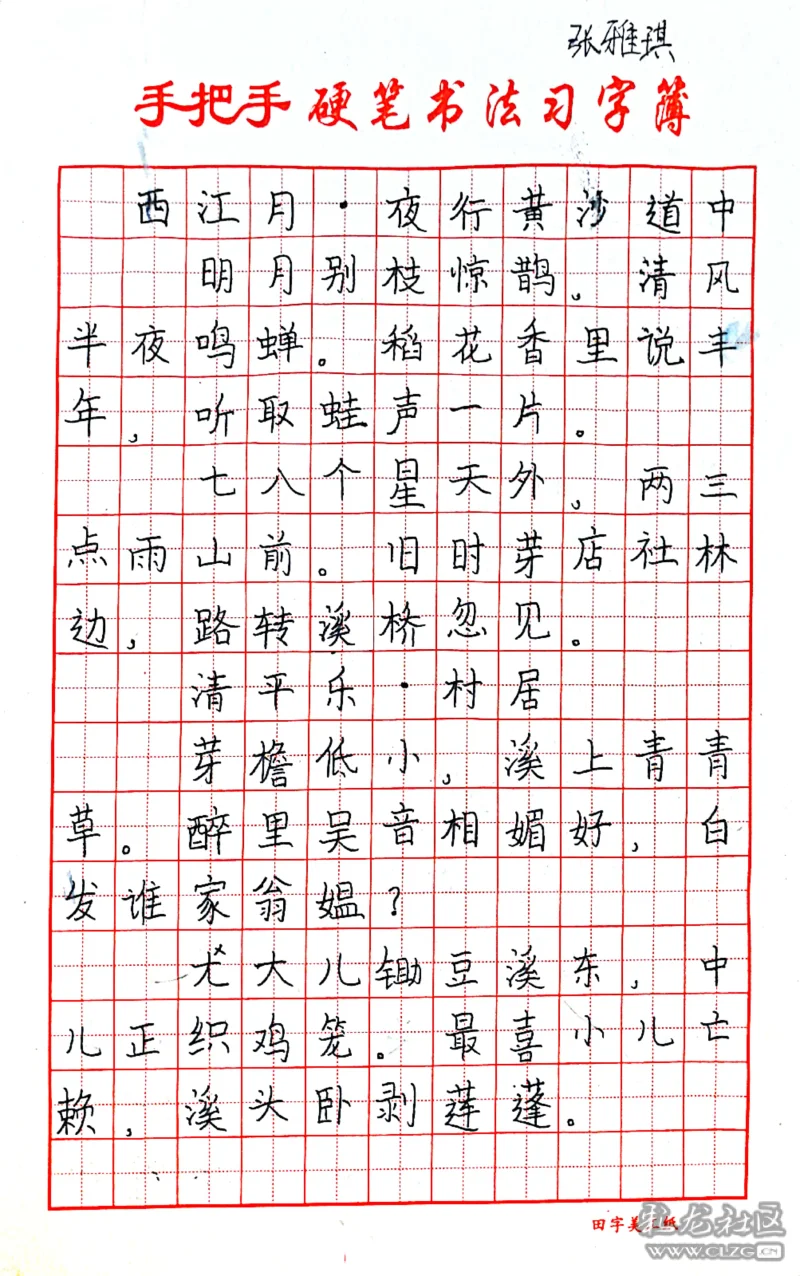 张雅琪
手把手硬笔书法习字簿
西江月·夜行黄沙道中
明月别枝惊鹊,清风
半夜鸣蝉。稻花香里说丰
年,听取蛙声一片。
七八个星天外,两三
点雨山前。旧时芽店社林
边,路转溪桥忽见。
清平乐·村居
芽檐低小,溪上青青
草。醉里吴音相媚好,白
发谁家翁媪?
大儿锄豆溪东,中
儿正织鸡笼。最喜小儿亡
赖,溪头卧剥莲蓬。
田字美工纸
龙社区
WWW.CLZG.CN